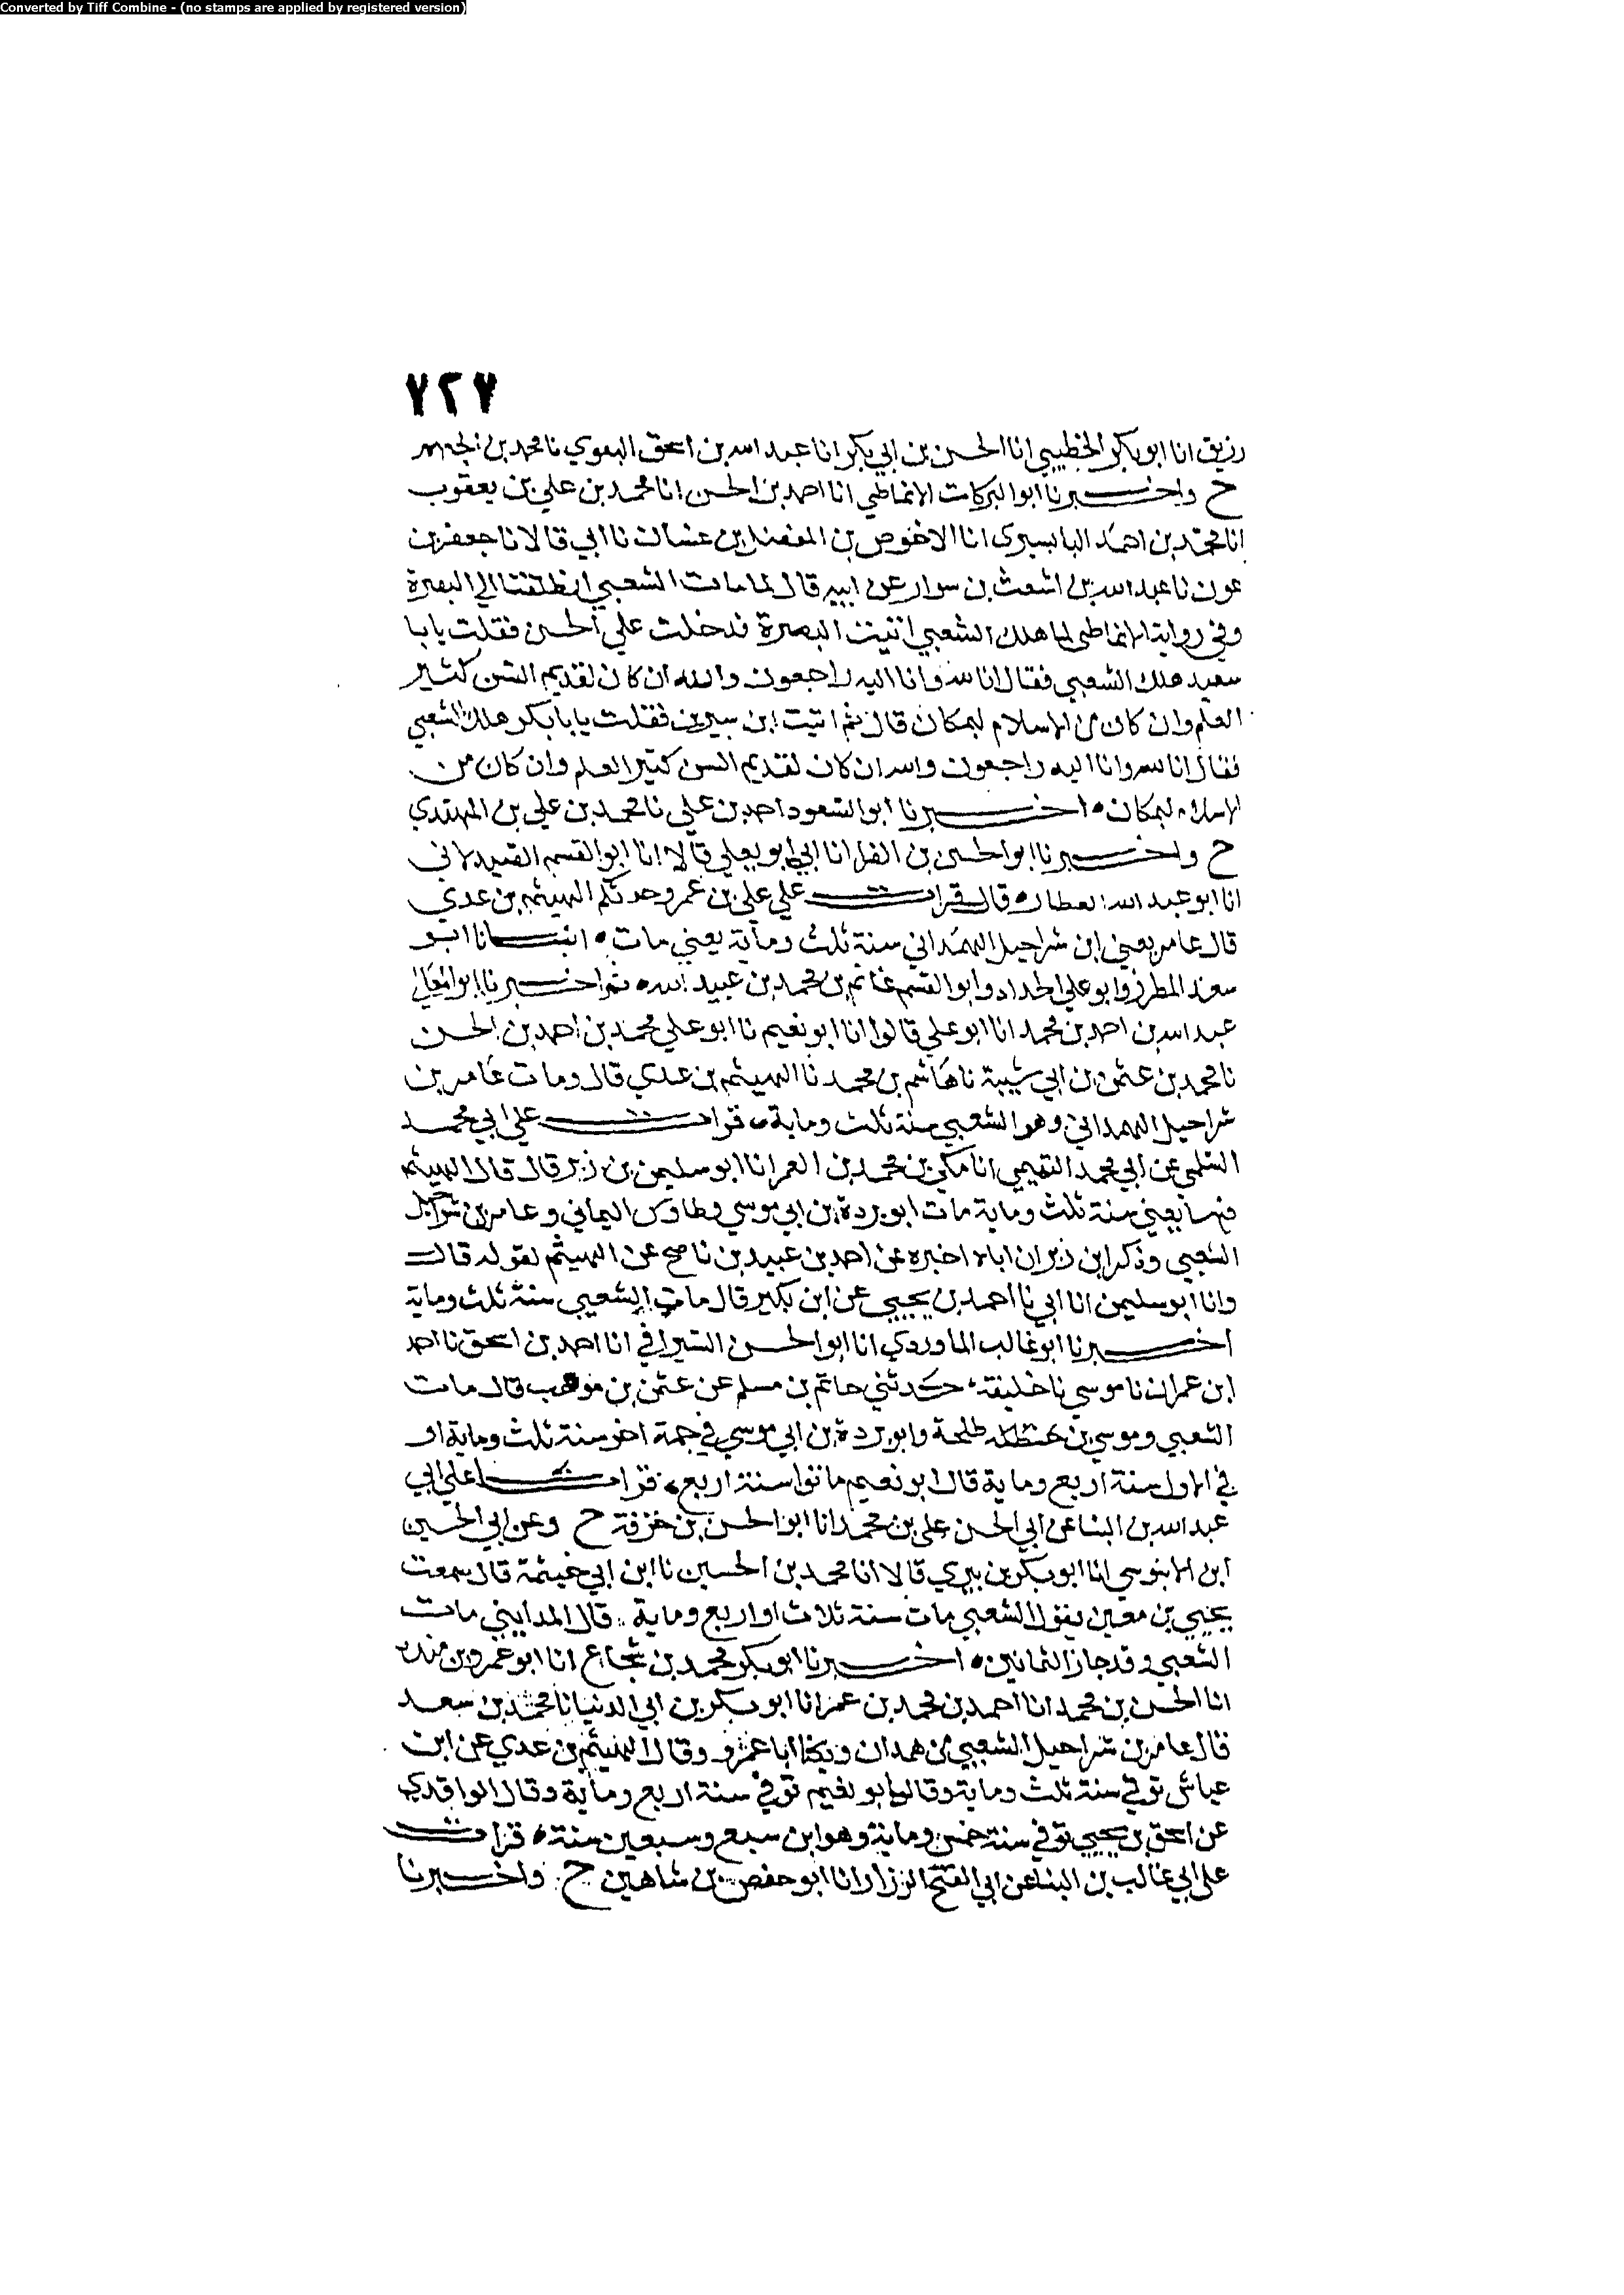 Converted by Tiff Combine - (no stamps are applied by registered version)
٧٢٧
رزيق انا ابوبكر الخطيب انا الحسن بن ابي بكر انا عبد الله بن اسحق البغوي نا محمد بن الجهم
ح واخبرنا ابوالبركات الانماطي انا احمد بن الحسن انا محمد بن علي بن يعقوب
انا محمد بن احمد البابسيرى انا الاخوص بن المفضل بن غسان نا ابي قالا نا جعفر بن
عون نا عبدالله بن اشعث بن سوار عن ابيه قال لما مات الشعبي انطلقت الي البصرة
وفي رواية الانماطي لما هلك الشعبي اتيت البصرة فدخلت علي الحسن فقلت يابا
سعيد هلك الشعبي فقال انا لله وانا اليه راجعون والله ان كان لقديم السن كثير
العلم وان كان من الاسلام لبمكان قال ثم اتيت ابن سيرين فقلت يابا بكر هلك الشعبي
فقال انا لله وانا اليه راجعون والله ان كان لقديم السن كثير العلم وان كان من
الاسلام لبمكان ٥ اخبرنا ابو السعود احمد بن علي نا محمد بن علي بن المهتدي
ح واخبرنا ابوالحسين بن الفرا انا ابي ابو يعلي قالا انا ابوالقسم الصيدلاني
انا ابو عبد الله العطار ٥ قال قرات علي علي بن عمرو حدثكم الهيثم بن عدي
قال عامر يعني ابن شراحيل الهمداني سنة ثلث وماية يعني مات ٥ انبانا ابو
سعد المطرز وابو علي الحداد وابو القسم غانم بن محمد بن عبيد الله ٥ ثم اخبرنا ابوالمعالي
عبد الله بن احمد بن محمد انا ابو علي قالوا انا ابو نعيم نا ابو علي محمد بن احمد بن الحسن
نا محمد بن عثمن بن ابي شيبة نا هاشم بن محمد نا الهيثم بن عدي قال ومات عامر بن
شراحيل الهمداني وهو الشعبي سنة ثلث وماية ٥ قرات علي ابي محمد
السلمي عن ابي محمد التميمي انا مكي بن محمد بن الغمر انا ابو سليمن بن زبر قال قال الهيثم
فيها يعني سنة ثلث وماية مات ابو بردة بن ابي موسي وطاوس اليماني وعامر بن شراحيل
الشعبي وذكر ابن زبر ان اباه اخبره عن احمد بن عبيد بن ناصح عن الهيثم بقوله قال
وانا ابو سليمن انا ابي نا احمد بن يحيي عن ابن بكير قال مات الشعبي سنة ثلث وماية
اخبرنا ابو غالب الماوردي انا ابوالحسن السيرافي انا احمد بن اسحق نا احمد
ابن عمران نا موسي نا خليفة حدثني حاتم بن مسلم عن عثمن بن موهب قال مات
الشعبي وموسي بن طلحة وابو بردة بن ابي موسي في جمعة اخر سنة ثلث وماية او
في الاول سنة اربع وماية قال ابو نعيم ماتوا سنة اربع ٥ قرات علي ابي
عبد الله بن البنا عن ابي الحسن علي بن محمد انا ابو الحسن بن خزفة ح وعن ابي الحسين
ابن الابنوسي انا ابو بكر بن بيري قالا انا محمد بن الحسين نا ابن ابي خيثمة قال سمعت
يحيي بن معين يقول الشعبي مات سنة ثلاث او اربع وماية قال المدايني مات
الشعبي وقد جاز الثمانين ٥ اخبرنا ابو بكر محمد بن شجاع انا ابو عمرو بن منده
انا الحسن بن محمد انا احمد بن محمد بن عمر انا ابو بكر بن ابي الدنيا نا محمد بن سعد
قال عامر بن شراحيل الشعبي من همدان ويكنا ابا عمرو وقال الهيثم بن عدي عن ابن
عياش توفي سنة ثلث وماية وقال ابو نعيم توفي سنة اربع وماية وقال الواقدي
عن اسحق بن يحيي توفي سنة خمس وماية وهو ابن سبع وسبعين سنة ٥ قرات
علي ابي غالب بن البنا عن ابي الفتح الرزاز انا ابو حفص بن شاهين ح واخبرنا